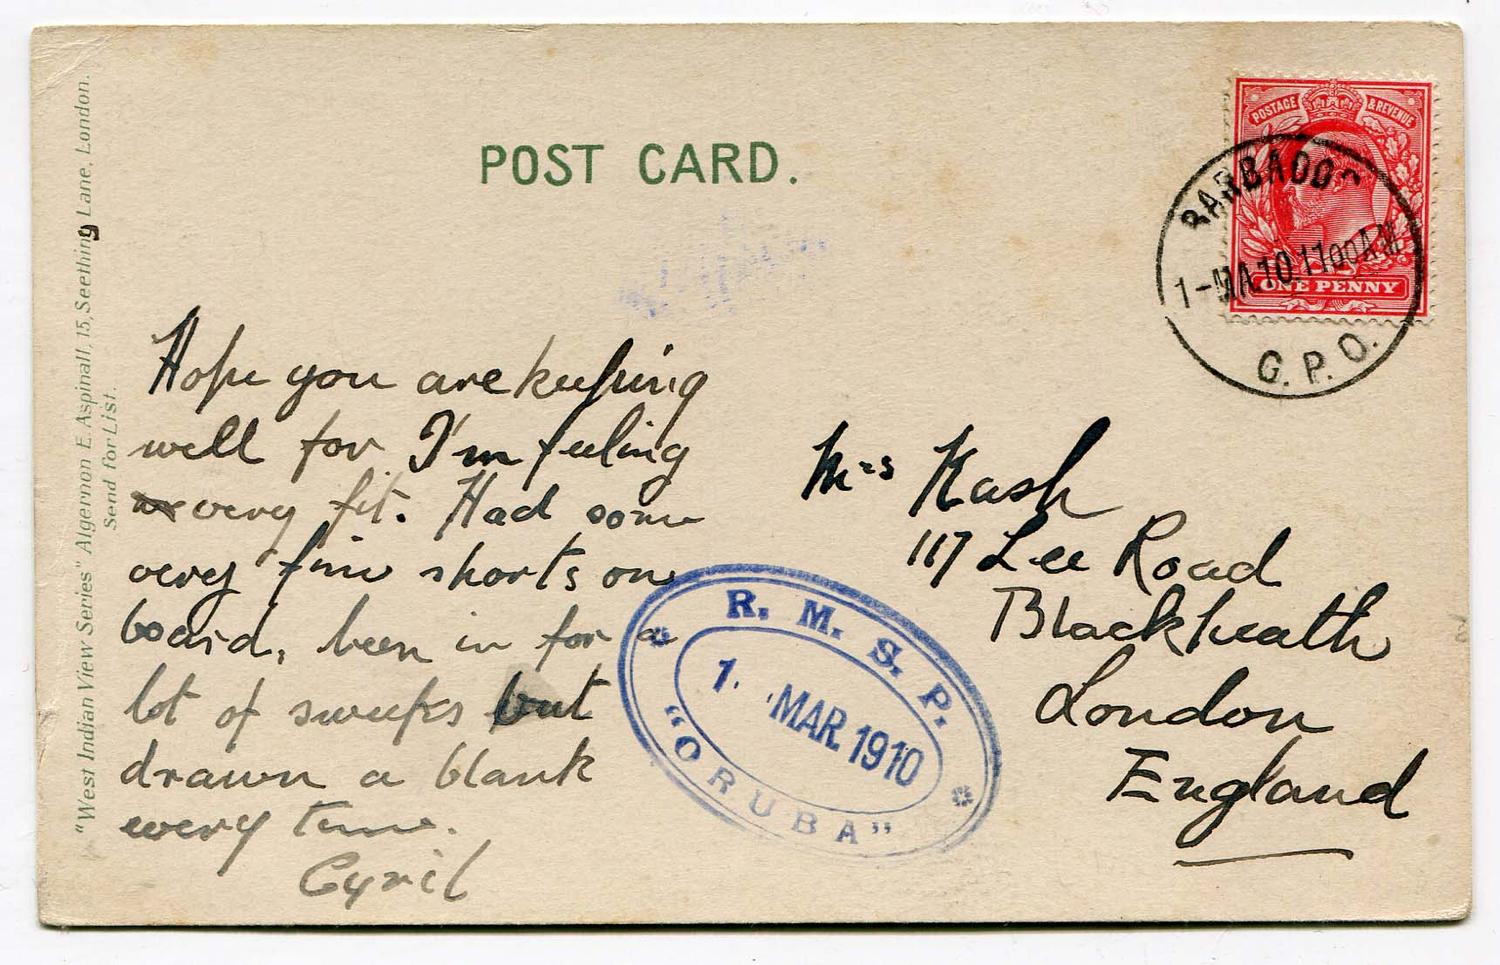 "West Indian View Series" Algernon E. Aspinall, 15, Seething Lane, London.
Send for List.
POST CARD.
POSTAGE & REVENUE
ONE PENNY
BARBADOS
1-MA.10.1100AM
G. P. O.
Hope you are keeping
well for I'm feeling
very fit. Had some
very fine shorts on
board, been in for a
lot of sweeps but
drawn a blank
every time.
Cyril
R. M. S. P.
1. MAR. 1910
"ORUBA"
Mrs Kash
117 Lee Road
Blackheath
London
England